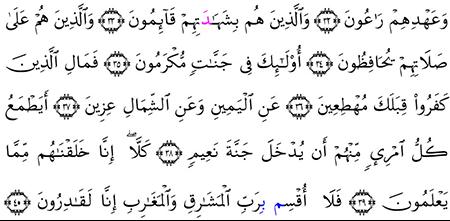 وَعَهْدِهِمْ رَٰعُونَ ﴿٣٢﴾ وَٱلَّذِينَ هُم بِشَهَـٰدَٰتِهِمْ قَآئِمُونَ ﴿٣٣﴾ وَٱلَّذِينَ هُمْ عَلَىٰ
صَلَاتِهِمْ يُحَافِظُونَ ﴿٣٤﴾ أُو۟لَـٰٓئِكَ فِى جَنَّـٰتٍ مُّكْرَمُونَ ﴿٣٥﴾ فَمَالِ ٱلَّذِينَ
كَفَرُوا۟ قِبَلَكَ مُهْطِعِينَ ﴿٣٦﴾ عَنِ ٱلْيَمِينِ وَعَنِ ٱلشِّمَالِ عِزِينَ ﴿٣٧﴾ أَيَطْمَعُ
كُلُّ ٱمْرِئٍ مِّنْهُمْ أَن يُدْخَلَ جَنَّةَ نَعِيمٍ ﴿٣٨﴾ كَلَّآ ۖ إِنَّا خَلَقْنَـٰهُم مِّمَّا
يَعْلَمُونَ ﴿٣٩﴾ فَلَآ أُقْسِمُ بِرَبِّ ٱلْمَشَـٰرِقِ وَٱلْمَغَـٰرِبِ إِنَّا لَقَـٰدِرُونَ ﴿٤٠﴾